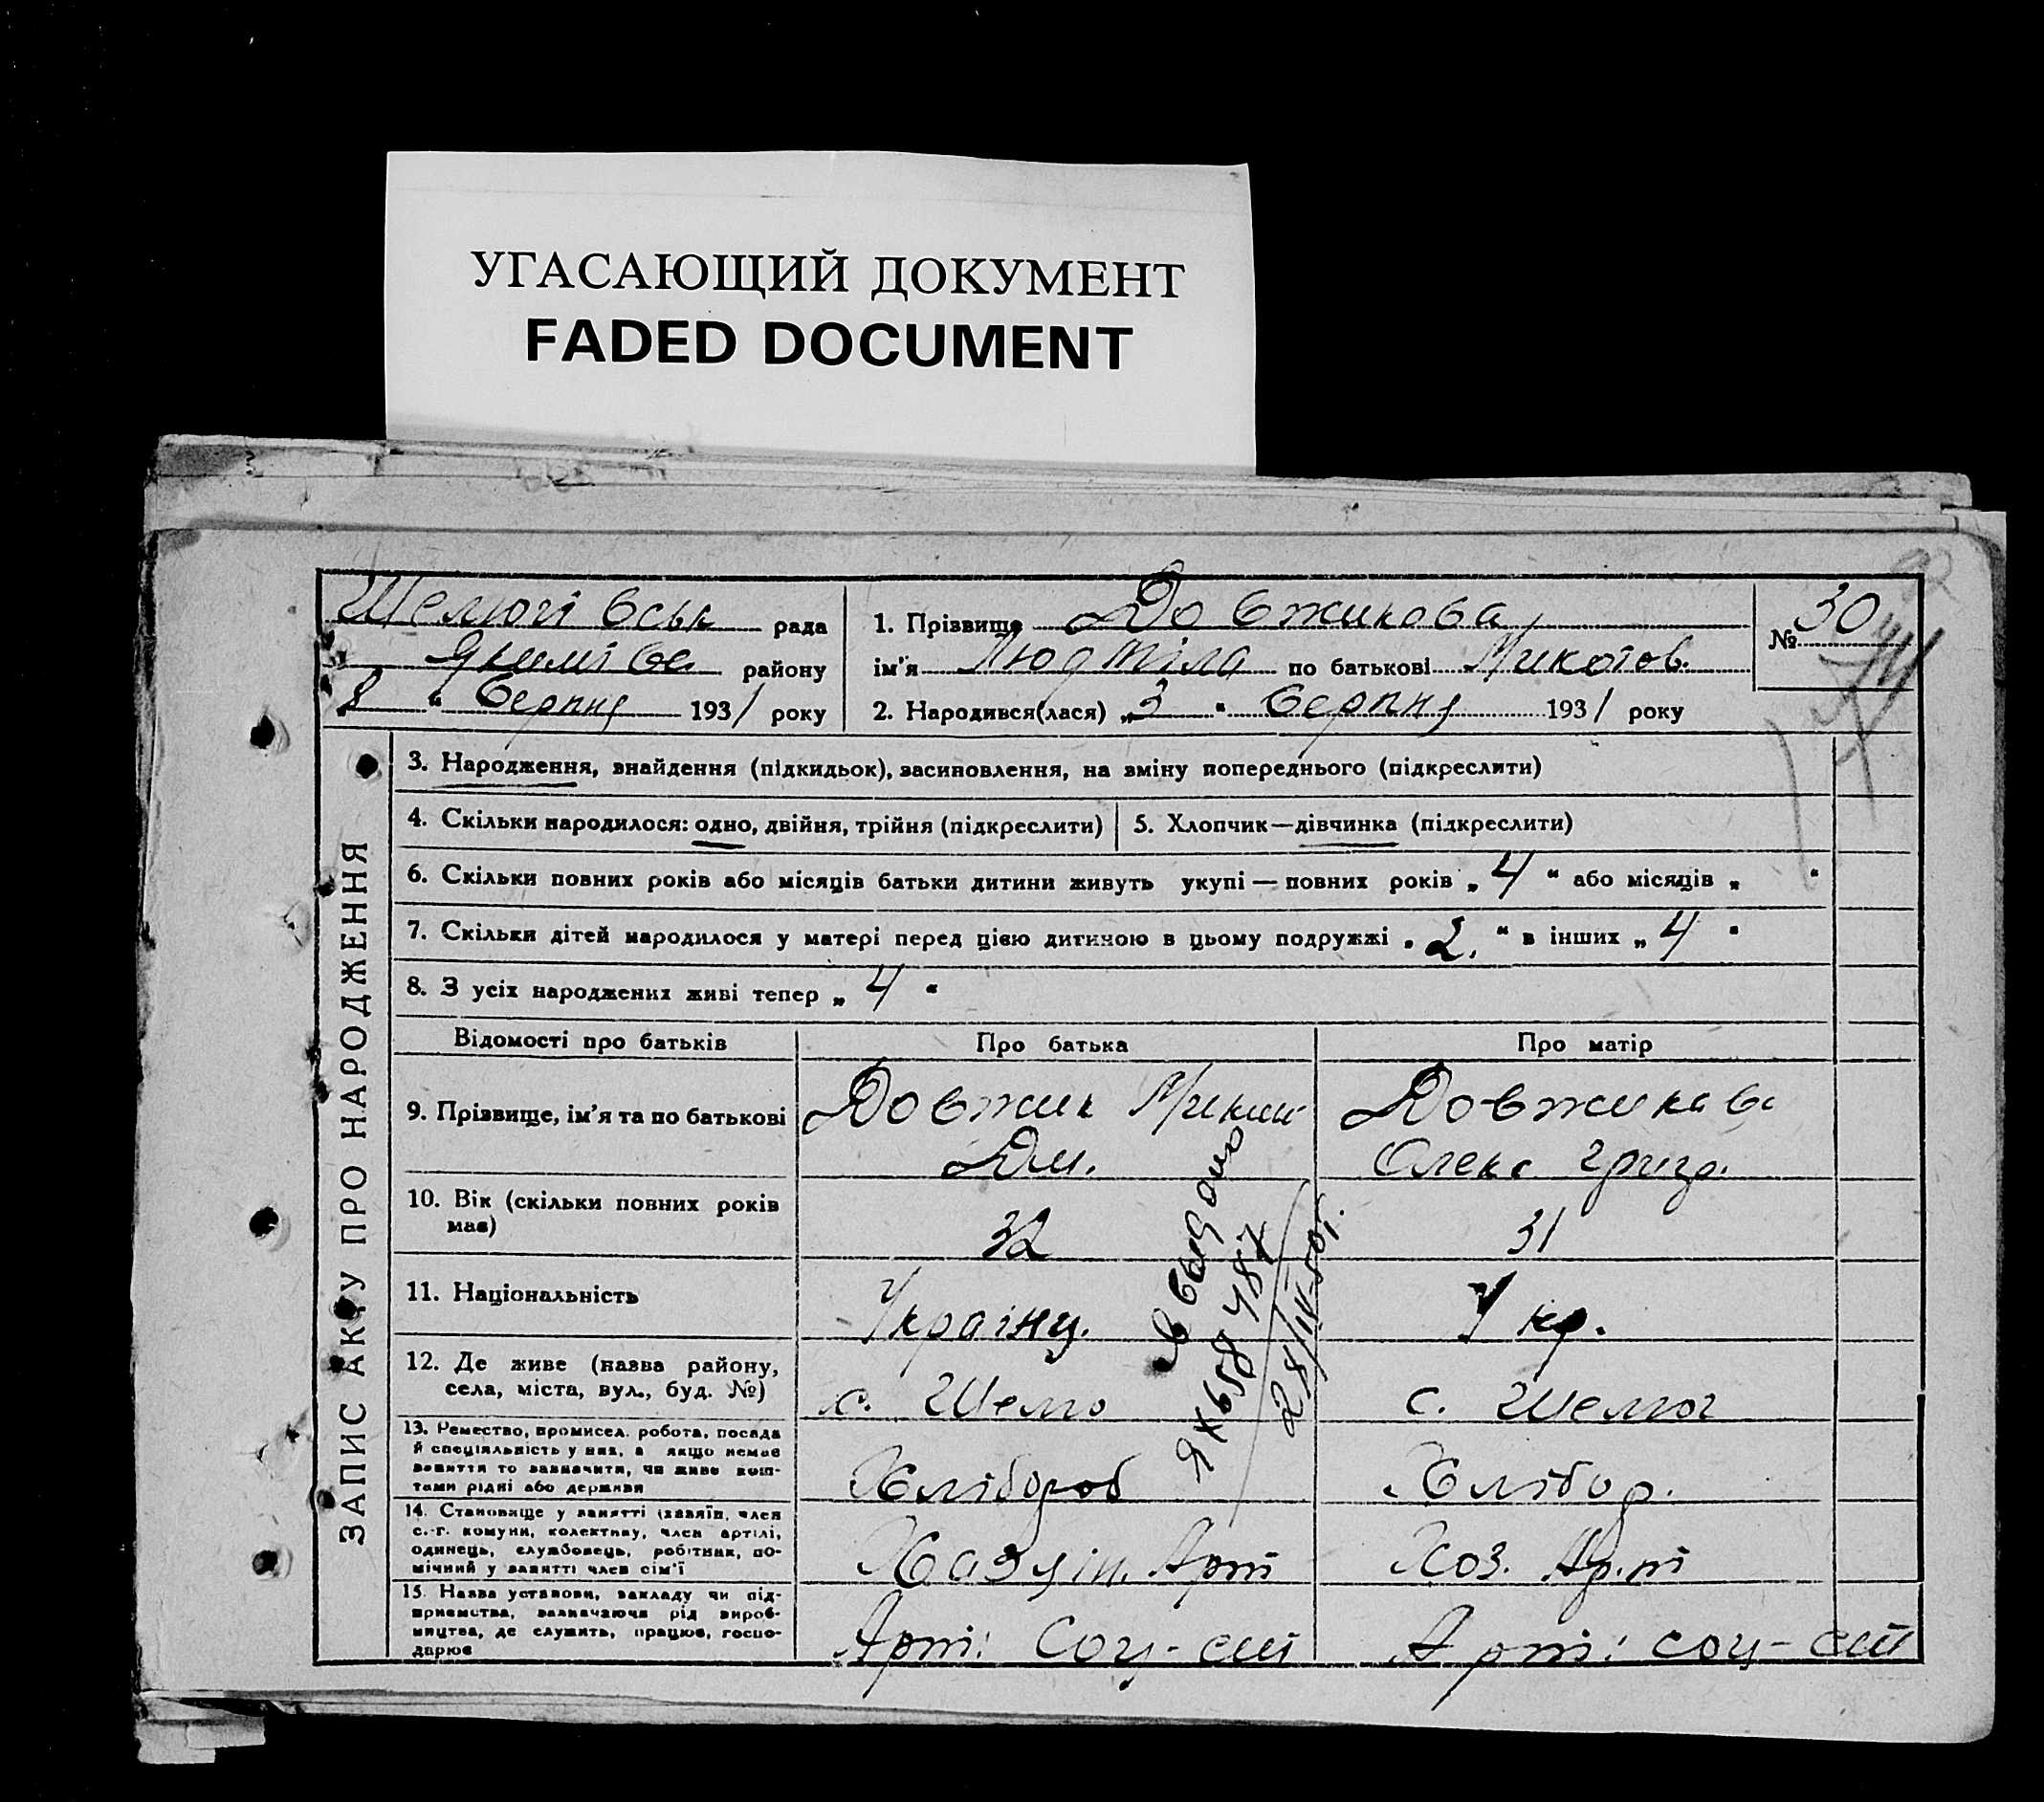 УГАСАЮЩИЙ ДОКУМЕНТ
FADED DOCUMENT
Шелюгівськ рада
Якимівс району
8 " Серпня 1931 року
1. Прізвище Довжикова
ім'я Людміла по батькові
2. Народився(лася) „3" Серпня 1931 року
№ 30
ЗАПИС АКТУ ПРО НАРОДЖЕННЯ
3. Народження, знайдення (підкидьок), засиновлення, на зміну попереднього (підкреслити)
4. Скільки народилося: одно, двійня, трійня (підкреслити)
5. Хлопчик—дівчинка (підкреслити)
6. Скільки повних років або місяців батьки дитини живуть укупі—повних років „4" або місяців „ "
7. Скільки дітей народилося у матері перед цією дитиною в цьому подружжі „2." в інших „4"
8. З усіх народжених живі тепер „4"
Відомості про батьків
Про батька
Про матір
9. Прізвище, ім'я та по батькові
Довжик
Дм.
Довжикова
Олекс Григо.
10. Вік (скільки повних років
має)
32
31
11. Національність
Українц.
Укр.
12. Де живе (назва району,
села, міста, вул., буд. №)
с. Шелю
с. Шелюг
13. Ремество, промисел, робота, посада
й спеціяльність у них, а якщо немає
заняття то зазначити, чи живе кош-
тами рідні або держави
Хлібороб
Хлібор.
14. Становище у занятті (хазяїн, член
с.-г. комуни, колективу, член артілі,
одинець, службовець, робітник, по-
мічний у занятті член сім'ї
Хазяін. Арт
Хоз. Ар.т
15. Назва установи, закладу чи під-
приємства, зазначаючи рід вироб-
ництва, де служить, працює, госпо-
дарює
Арт: Соц-
Арт: соц-
выдано
ЯХ658487
28/IV-50г.